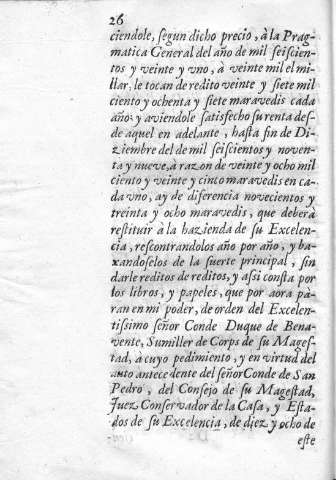 26
ciendole, segun dicho precio, à la Prag-
matica General del año de mil seiscien-
tos y veinte y vno, à veinte mil el mi-
llar, le tocan de redito veinte y siete mil
ciento y ochenta y siete maravedis cada
año; y aviendole satisfecho su renta des-
de aquel en adelante, hasta fin de Di-
ziembre del de mil seiscientos y noven-
ta y nueve, à razon de veinte y ocho mil
ciento y veinte y cinco maravedis en ca-
da vno, ay de diferencia novecientos y
treinta y ocho maravedis, que deberà
restituir à la hazienda de su Excelen-
cia, rescontrandolos año por año, y ba-
xandoselos de la suerte principal, sin
darle reditos de reditos, y assi consta por
los libros, y papeles, que por aora pà-
ran en mi poder, de orden del Excelen-
tissimo señor Conde Duque de Bena-
vente, Sumiller de Corps de su Mages-
tad, à cuyo pedimiento, y en virtud del
auto antecedente del señor Conde de San
Pedro, del Consejo de su Magestad,
Juez Conservador de la Casa, y Esta-
dos de su Excelencia, de diez y ocho de
este